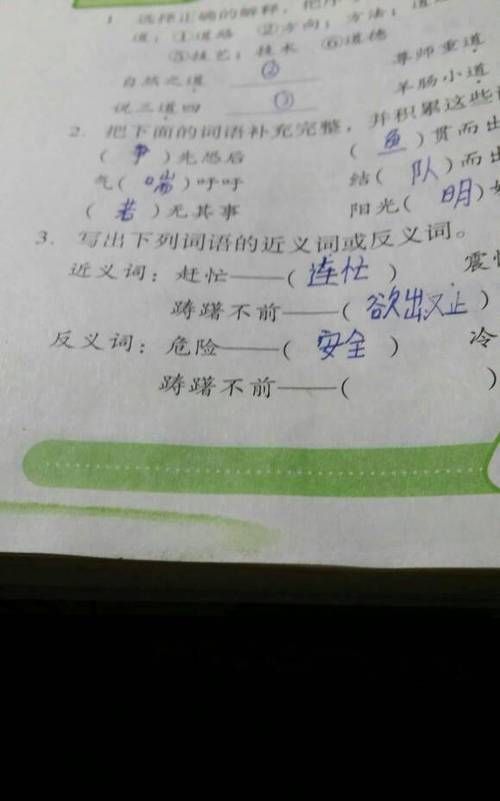 1. 选择正确的解释，把序
道：①道路 ②方向；方法；道
⑤技艺；技术 ⑥道德
自然之道 ② 尊师重道
说三道四 ③ 羊肠小道
2. 把下面的词语补充完整，并积累这些
(争)先恐后 (鱼)贯而出
气(喘)吁吁 结(队)而出
(若)无其事 阳光(明)
3. 写出下列词语的近义词或反义词。
近义词：赶忙——(连忙) 震
踌躇不前——(欲出又止)
反义词：危险——(安全) 冷
踌躇不前——( )